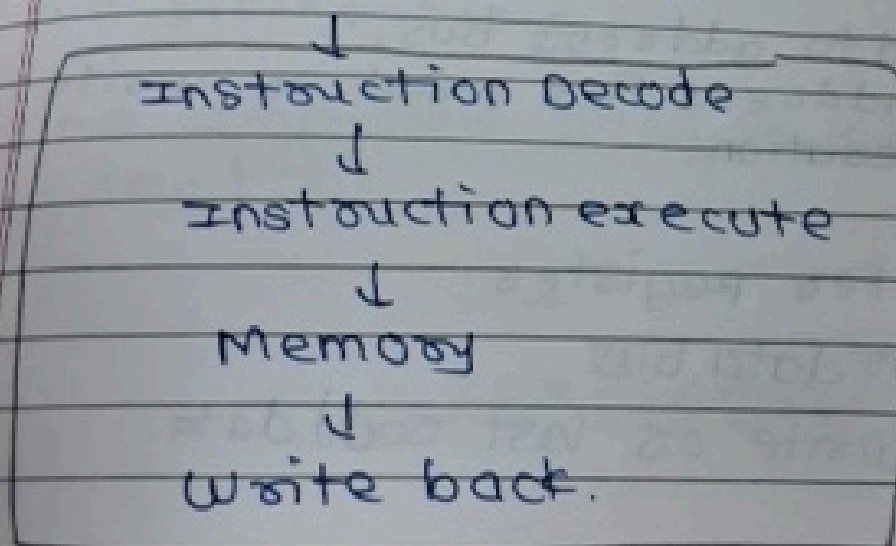 ↓
Instruction Decode
↓
Instruction execute
↓
Memory
↓
Write back.